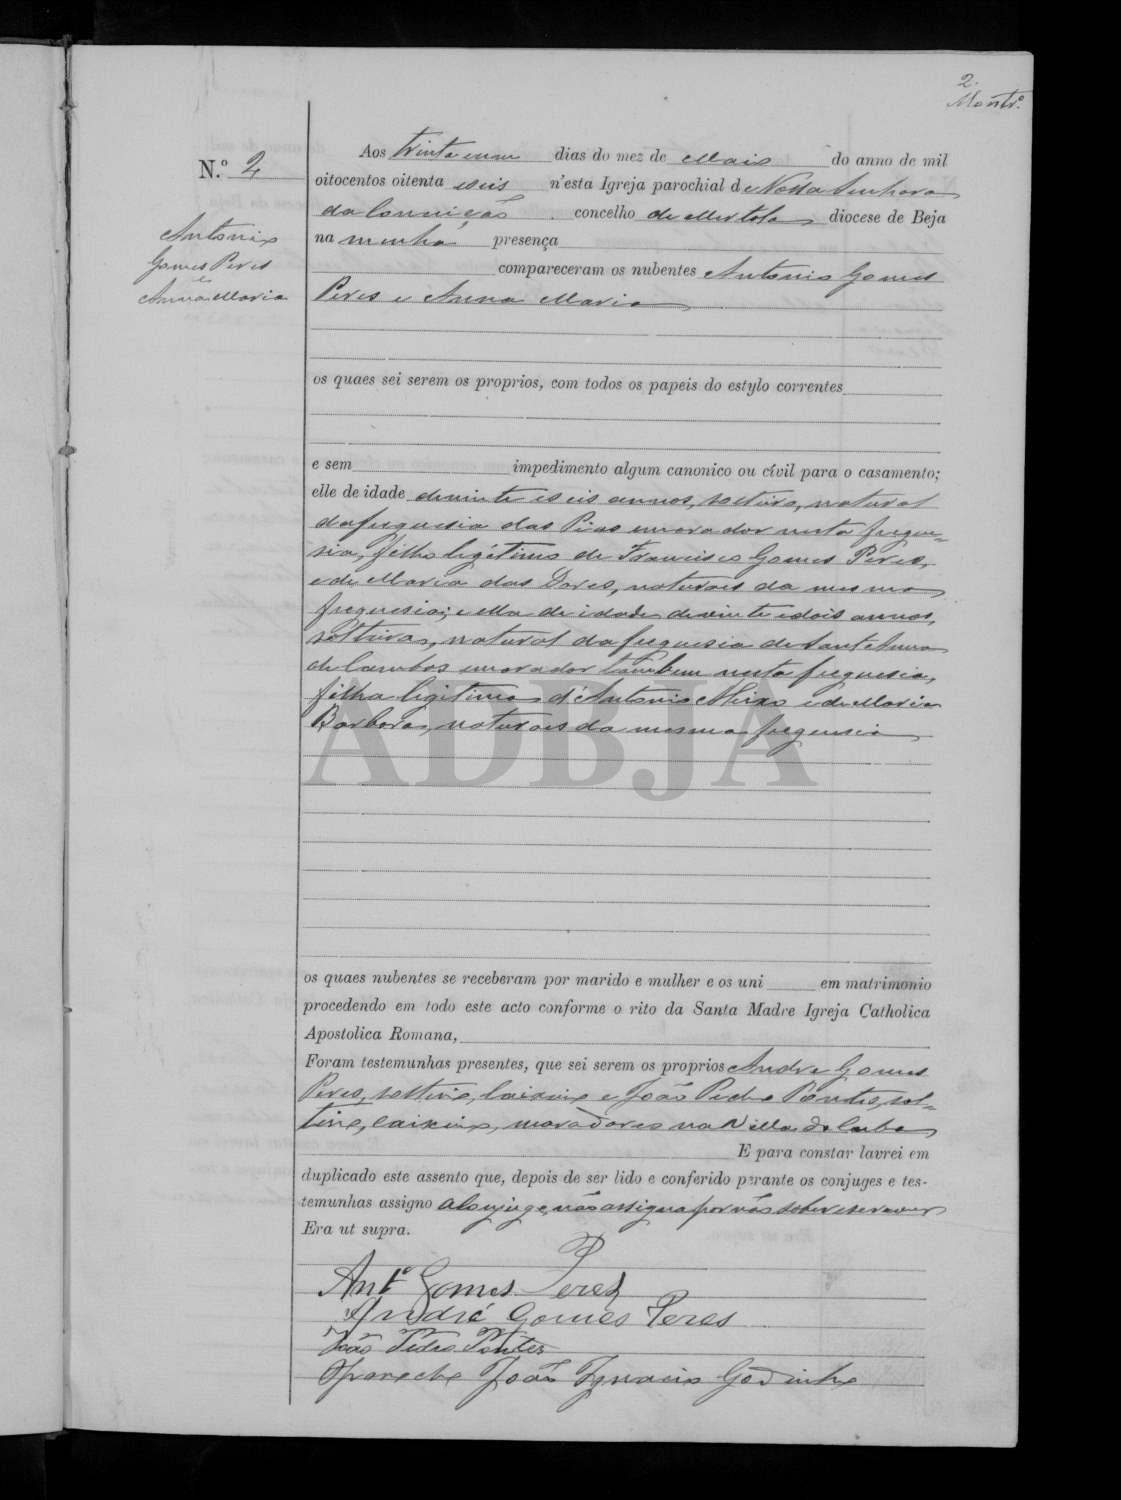 2.
Montr.º
N.º 2
Antonio
Gomes Peres
e
Anna Maria
Aos trinta e um dias do mez de Maio do anno de mil
oitocentos oitenta e seis n'esta Igreja parochial de Nossa Senhora
da Conceição concelho de Mertola diocese de Beja
na minha presença
compareceram os nubentes Antonio Gomes
Peres e Anna Maria
os quaes sei serem os proprios, com todos os papeis do estylo correntes
e sem impedimento algum canonico ou civil para o casamento;
elle de idade de vinte e seis annos, solteiro, natural
da freguesia das Pias morador nesta fregue=
sia, filho legitimo de Francisco Gomes Peres,
e de Maria das Dores, naturaes da mesma
freguesia; e ella de idade de vinte e dois annos,
solteira, natural da freguesia de Sant'Anna
de Cambas morador tambem nesta freguesia,
filha legitima d'Antonio e de Maria
Barbara, naturaes da mesma freguesia
ADBJA
os quaes nubentes se receberam por marido e mulher e os uni em matrimonio
procedendo em todo este acto conforme o rito da Santa Madre Igreja Catholica
Apostolica Romana,
Foram testemunhas presentes, que sei serem os proprios Andre Gomes
Peres, solteiro, caixeiro e João Pedro Pontes, sol=
teiro, caixeiro, moradores na Villa de Cuba
E para constar lavrei em
duplicado este assento que, depois de ser lido e conferido perante os conjuges e tes-
temunhas assigno a conjuge não assigna por não saber escrever
Era ut supra.
Ant.º Gomes Peres
André Gomes Peres
João Pedro Pontes
O Parocho João Ignacio Godinho